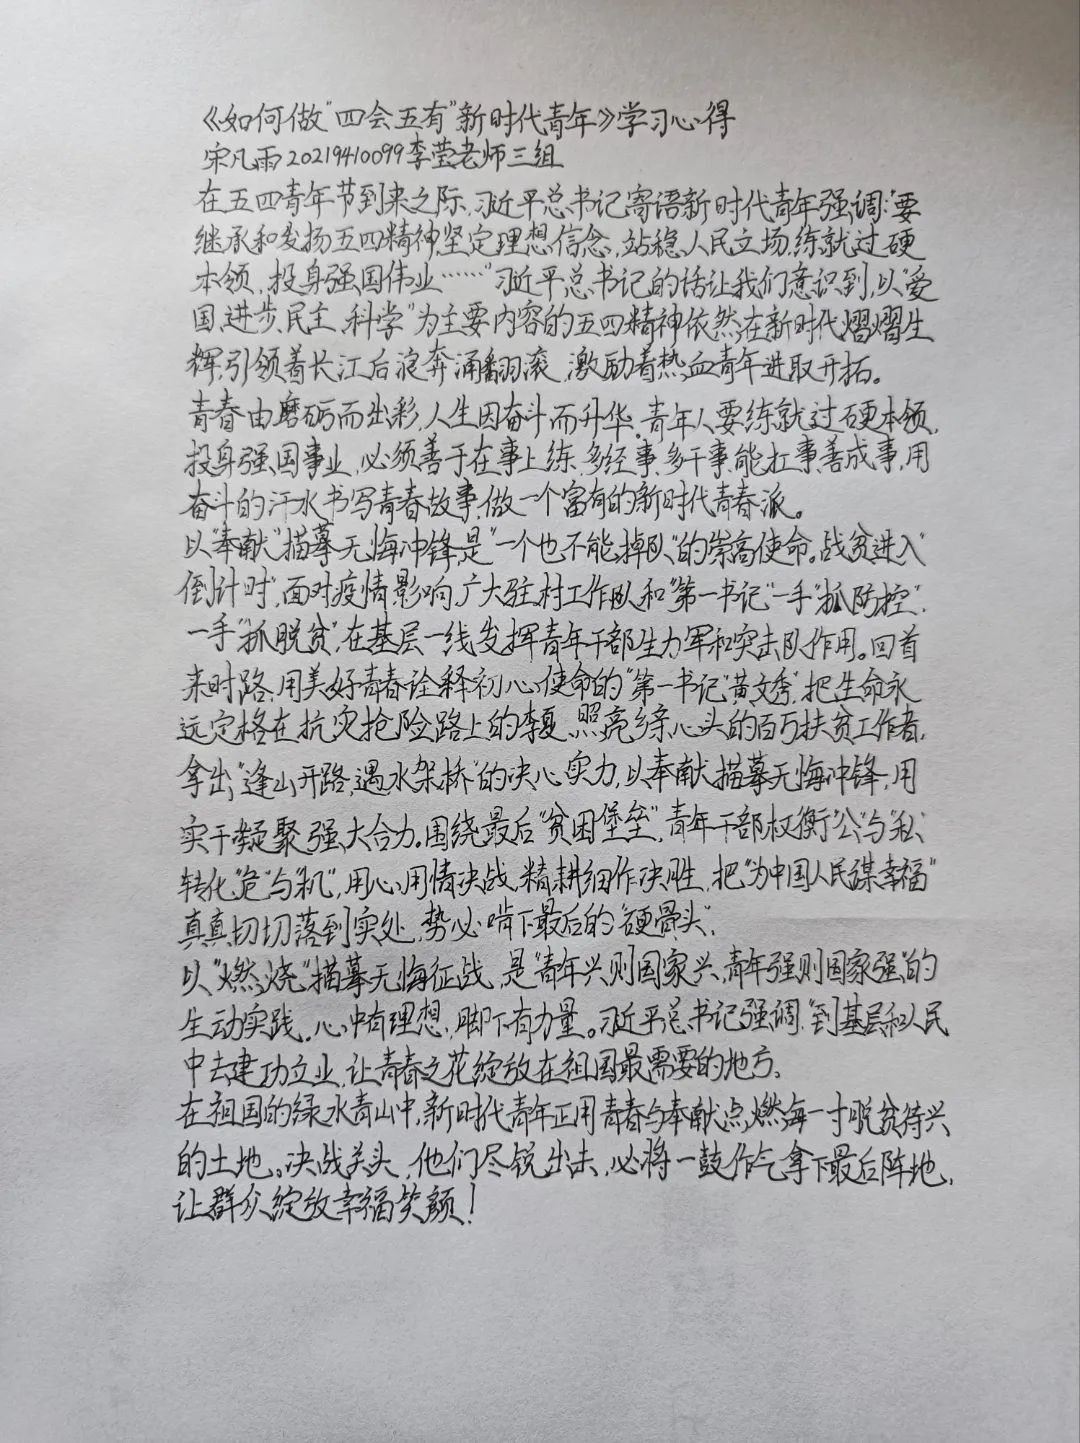 《如何做“四会五有”新时代青年》学习心得
宋凡雨20219410099李莹老师三组
在五四青年节到来之际,习近平总书记寄语新时代青年强调:“要
继承和发扬五四精神,坚定理想信念,站稳人民立场,练就过硬
本领,投身强国伟业……”习近平总书记的话让我们意识到,以“爱
国,进步,民主,科学”为主要内容的五四精神依然在新时代熠熠生
辉,引领着长江后浪奔涌翻滚,激励着热血青年进取开拓。
青春由磨砺而出彩,人生因奋斗而升华.青年人要练就过硬本领,
投身强国事业,必须善于在事上练,多经事,多干事,能扛事,善成事,用
奋斗的汗水书写青春故事,做一个富有的新时代青春派。
以“奉献”描摹无悔冲锋,是“一个也不能掉队”的崇高使命。战贫进入“
倒计时”,面对疫情影响,广大驻村工作队和“第一书记”一手“抓防控”,
一手“抓脱贫”,在基层一线发挥青年干部生力军和突击队作用。回首
来时路,用美好青春诠释初心使命的“第一书记”黄文秀,把生命永
远定格在抗灾抢险路上的李夏,照亮乡亲心头的百万扶贫工作者,
拿出“逢山开路,遇水架桥”的决心实力,以奉献描摹无悔冲锋,用
实干凝聚强大合力.围绕最后“贫困堡垒”,青年干部权衡“公”与“私”,
转化“危”与“机”,用心用情决战,精耕细作决胜,把“为中国人民谋幸福”
真真切切落到实处,势必啃下最后的“硬骨头”.
以“燃烧”描摹无悔征战,是“青年兴则国家兴,青年强则国家强”的
生动实践.心中有理想,脚下有力量。习近平总书记强调,“到基层和人民
中去建功立业,让青春之花绽放在祖国最需要的地方.
在祖国的绿水青山中,新时代青年正用青春与奉献点燃每一寸脱贫待兴
的土地。决战关头,他们尽锐出击,必将一鼓作气拿下最后阵地,
让群众绽放幸福笑颜!